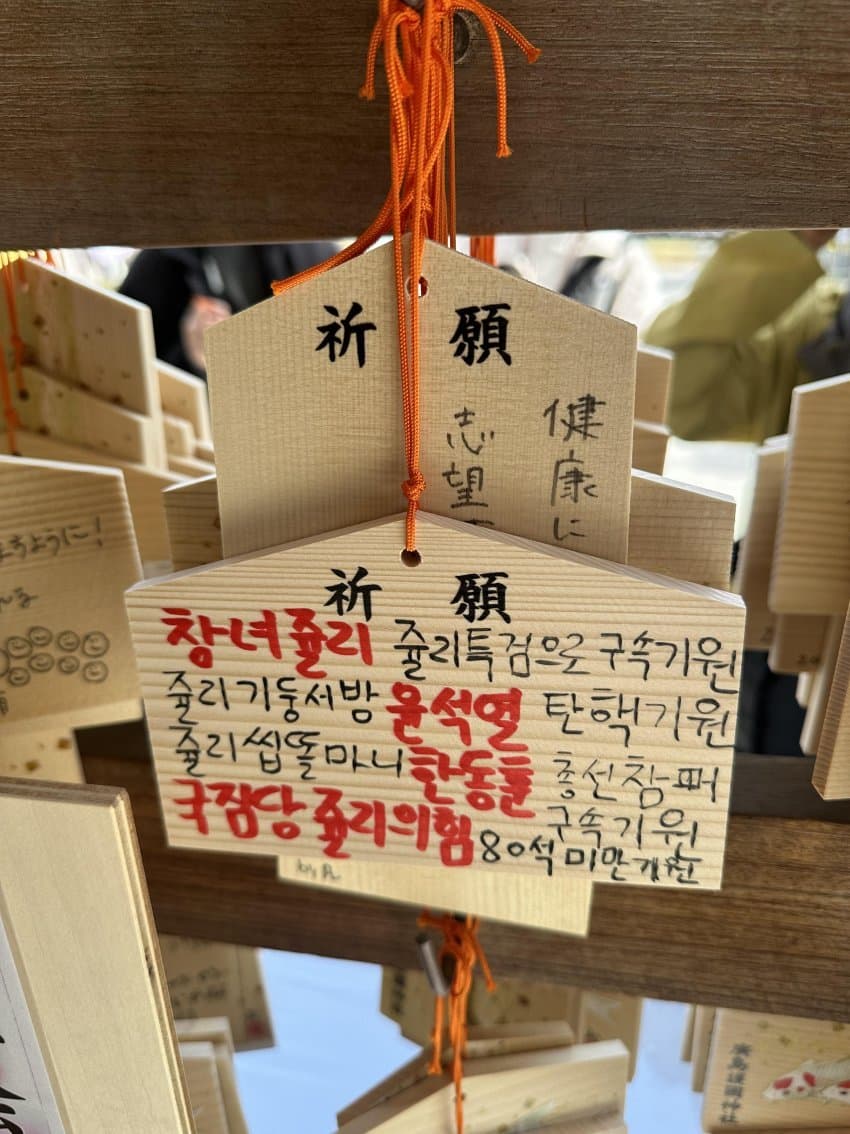 祈 願
健康に
志望
祈 願
창녀쥴리 쥴리특검으로 구속기원
쥴리기둥서방 윤석열 탄핵기원
쥴리씹똘마니 한동훈 총선참패
구속기원
국짐당 쥴리의힘 80석 미만 기원
ように!
by凡
廣島護國神社